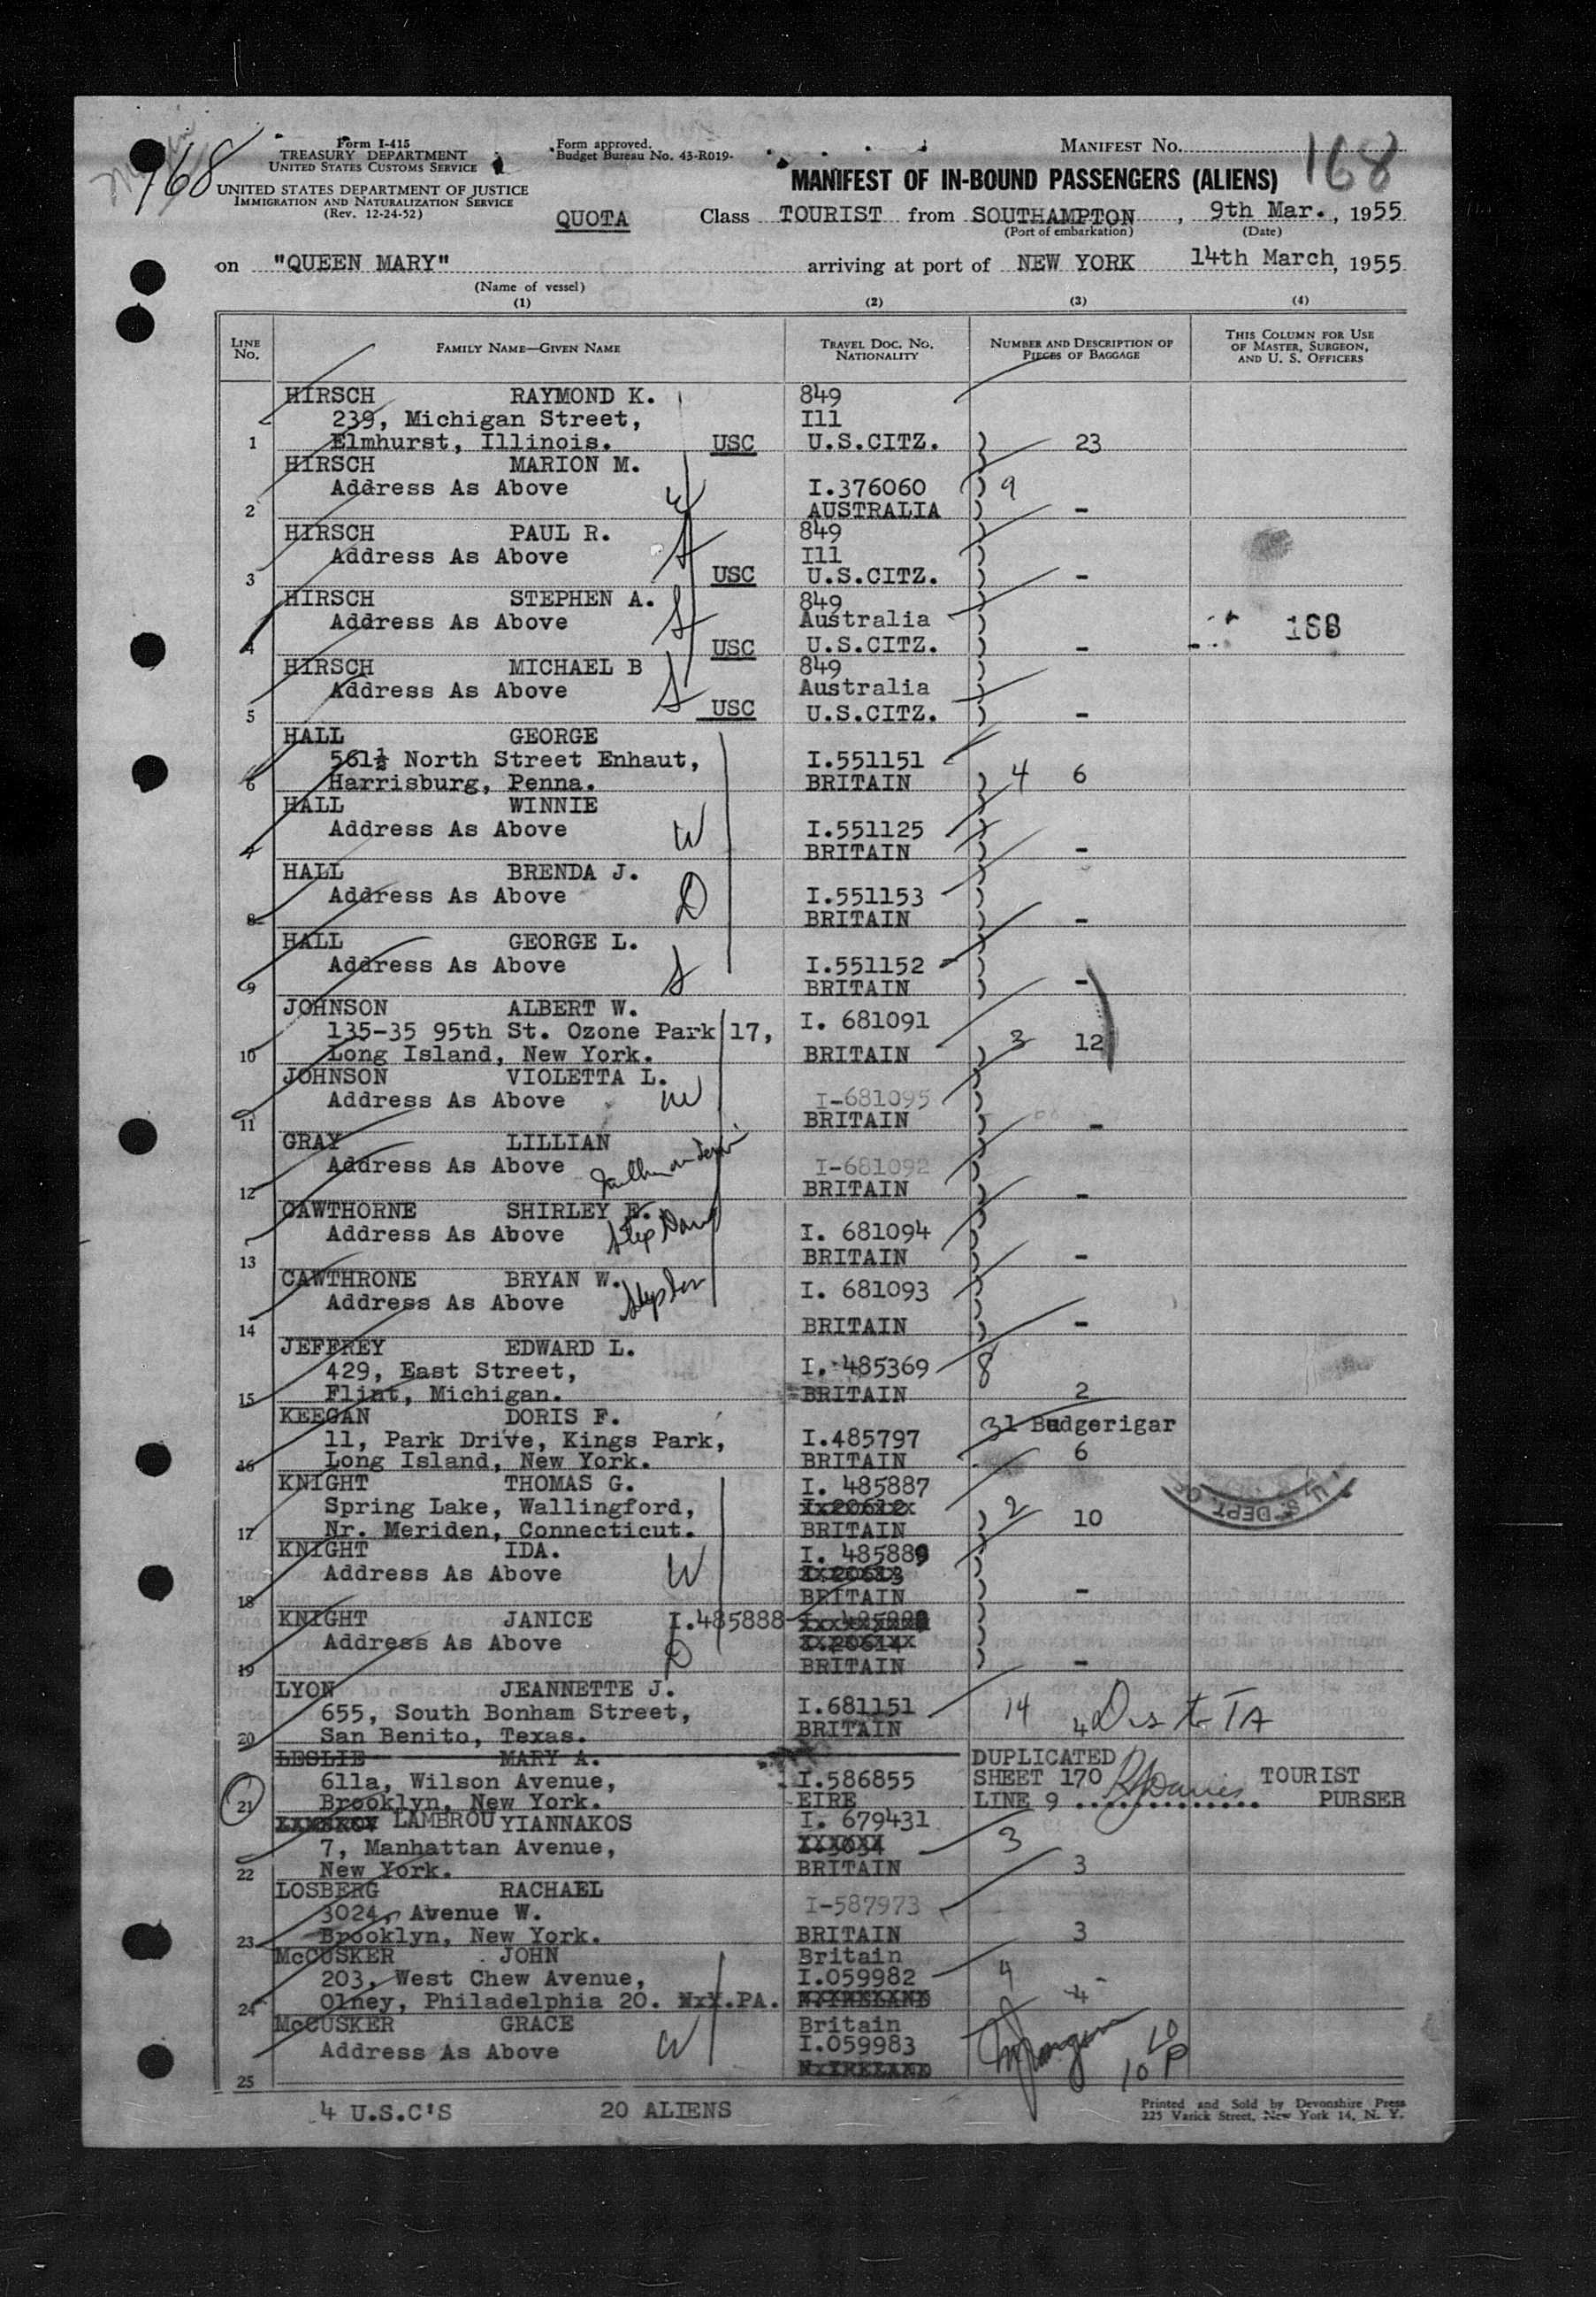 168
Form I-415
TREASURY DEPARTMENT
UNITED STATES CUSTOMS SERVICE
UNITED STATES DEPARTMENT OF JUSTICE
IMMIGRATION AND NATURALIZATION SERVICE
(Rev. 12-24-52)
Form approved.
Budget Bureau No. 43-R019-
MANIFEST No. 168
MANIFEST OF IN-BOUND PASSENGERS (ALIENS)
QUOTA Class TOURIST from SOUTHAMPTON, 9th Mar., 1955
(Port of embarkation) (Date)
on "QUEEN MARY" arriving at port of NEW YORK 14th March, 1955
(Name of vessel)
(1) (2) (3) (4)
LINE No. FAMILY NAME—GIVEN NAME TRAVEL DOC. NO. NATIONALITY NUMBER AND DESCRIPTION OF PIECES OF BAGGAGE THIS COLUMN FOR USE OF MASTER, SURGEON, AND U. S. OFFICERS
HIRSCH RAYMOND K. 849
239, Michigan Street, Ill
1 Elmhurst, Illinois. USC U.S.CITZ. ) 23
HIRSCH MARION M.
Address As Above W I.376060 ) 9
2 AUSTRALIA ) -
HIRSCH PAUL R. 849
Address As Above S Ill
3 USC U.S.CITZ. ) -
HIRSCH STEPHEN A. 849
Address As Above S Australia 168
4 USC U.S.CITZ. ) -
HIRSCH MICHAEL B 849
Address As Above S Australia
5 USC U.S.CITZ. ) -
HALL GEORGE
561½ North Street Enhaut, I.551151
6 Harrisburg, Penna. BRITAIN ) 4 6
HALL WINNIE
Address As Above W I.551125
7 BRITAIN ) -
HALL BRENDA J.
Address As Above D I.551153
8 BRITAIN ) -
HALL GEORGE L.
Address As Above S I.551152
9 BRITAIN ) -
JOHNSON ALBERT W. I. 681091
135-35 95th St. Ozone Park 17,
10 Long Island, New York. BRITAIN ) 3 12
JOHNSON VIOLETTA L.
Address As Above W I-681095
11 BRITAIN ) -
GRAY LILLIAN
Address As Above I-681092
12 BRITAIN ) -
CAWTHORNE SHIRLEY E.
Address As Above Step Dau I. 681094
13 BRITAIN ) -
CAWTHRONE BRYAN W.
Address As Above Step Son I. 681093
14 BRITAIN ) -
JEFFREY EDWARD L.
429, East Street, I. 485369 8
15 Flint, Michigan. BRITAIN 2
KEEGAN DORIS F. 3 1 Budgerigar
11, Park Drive, Kings Park, I.485797
16 Long Island, New York. BRITAIN 6
KNIGHT THOMAS G. I. 485887
Spring Lake, Wallingford, I.20612
17 Nr. Meriden, Connecticut. BRITAIN ) 2 10
KNIGHT IDA. I. 485889
Address As Above W I.20613
18 BRITAIN ) -
KNIGHT JANICE I.485888
Address As Above D I.20614
19 BRITAIN ) -
LYON JEANNETTE J.
655, South Bonham Street, I.681151 14
20 San Benito, Texas. BRITAIN 4
LESLIE MARY A. DUPLICATED
611a, Wilson Avenue, I.586855 SHEET 170 TOURIST
21 Brooklyn, New York. EIRE LINE 9 .............. PURSER
LAMBROU YIANNAKOS I. 679431
7, Manhattan Avenue, 3
22 New York. BRITAIN 3
LOSBERG RACHAEL
3024, Avenue W. I-587973
23 Brooklyn, New York. BRITAIN 3
McCUSKER JOHN Britain
203, West Chew Avenue, I.059982 4
24 Olney, Philadelphia 20. PA. N.IRELAND 4
McCUSKER GRACE Britain
Address As Above W I.059983
25 N.IRELAND
4 U.S.C'S 20 ALIENS
U. S. DEPT. OF
Printed and Sold by Devonshire Press
225 Varick Street, New York 14, N. Y.